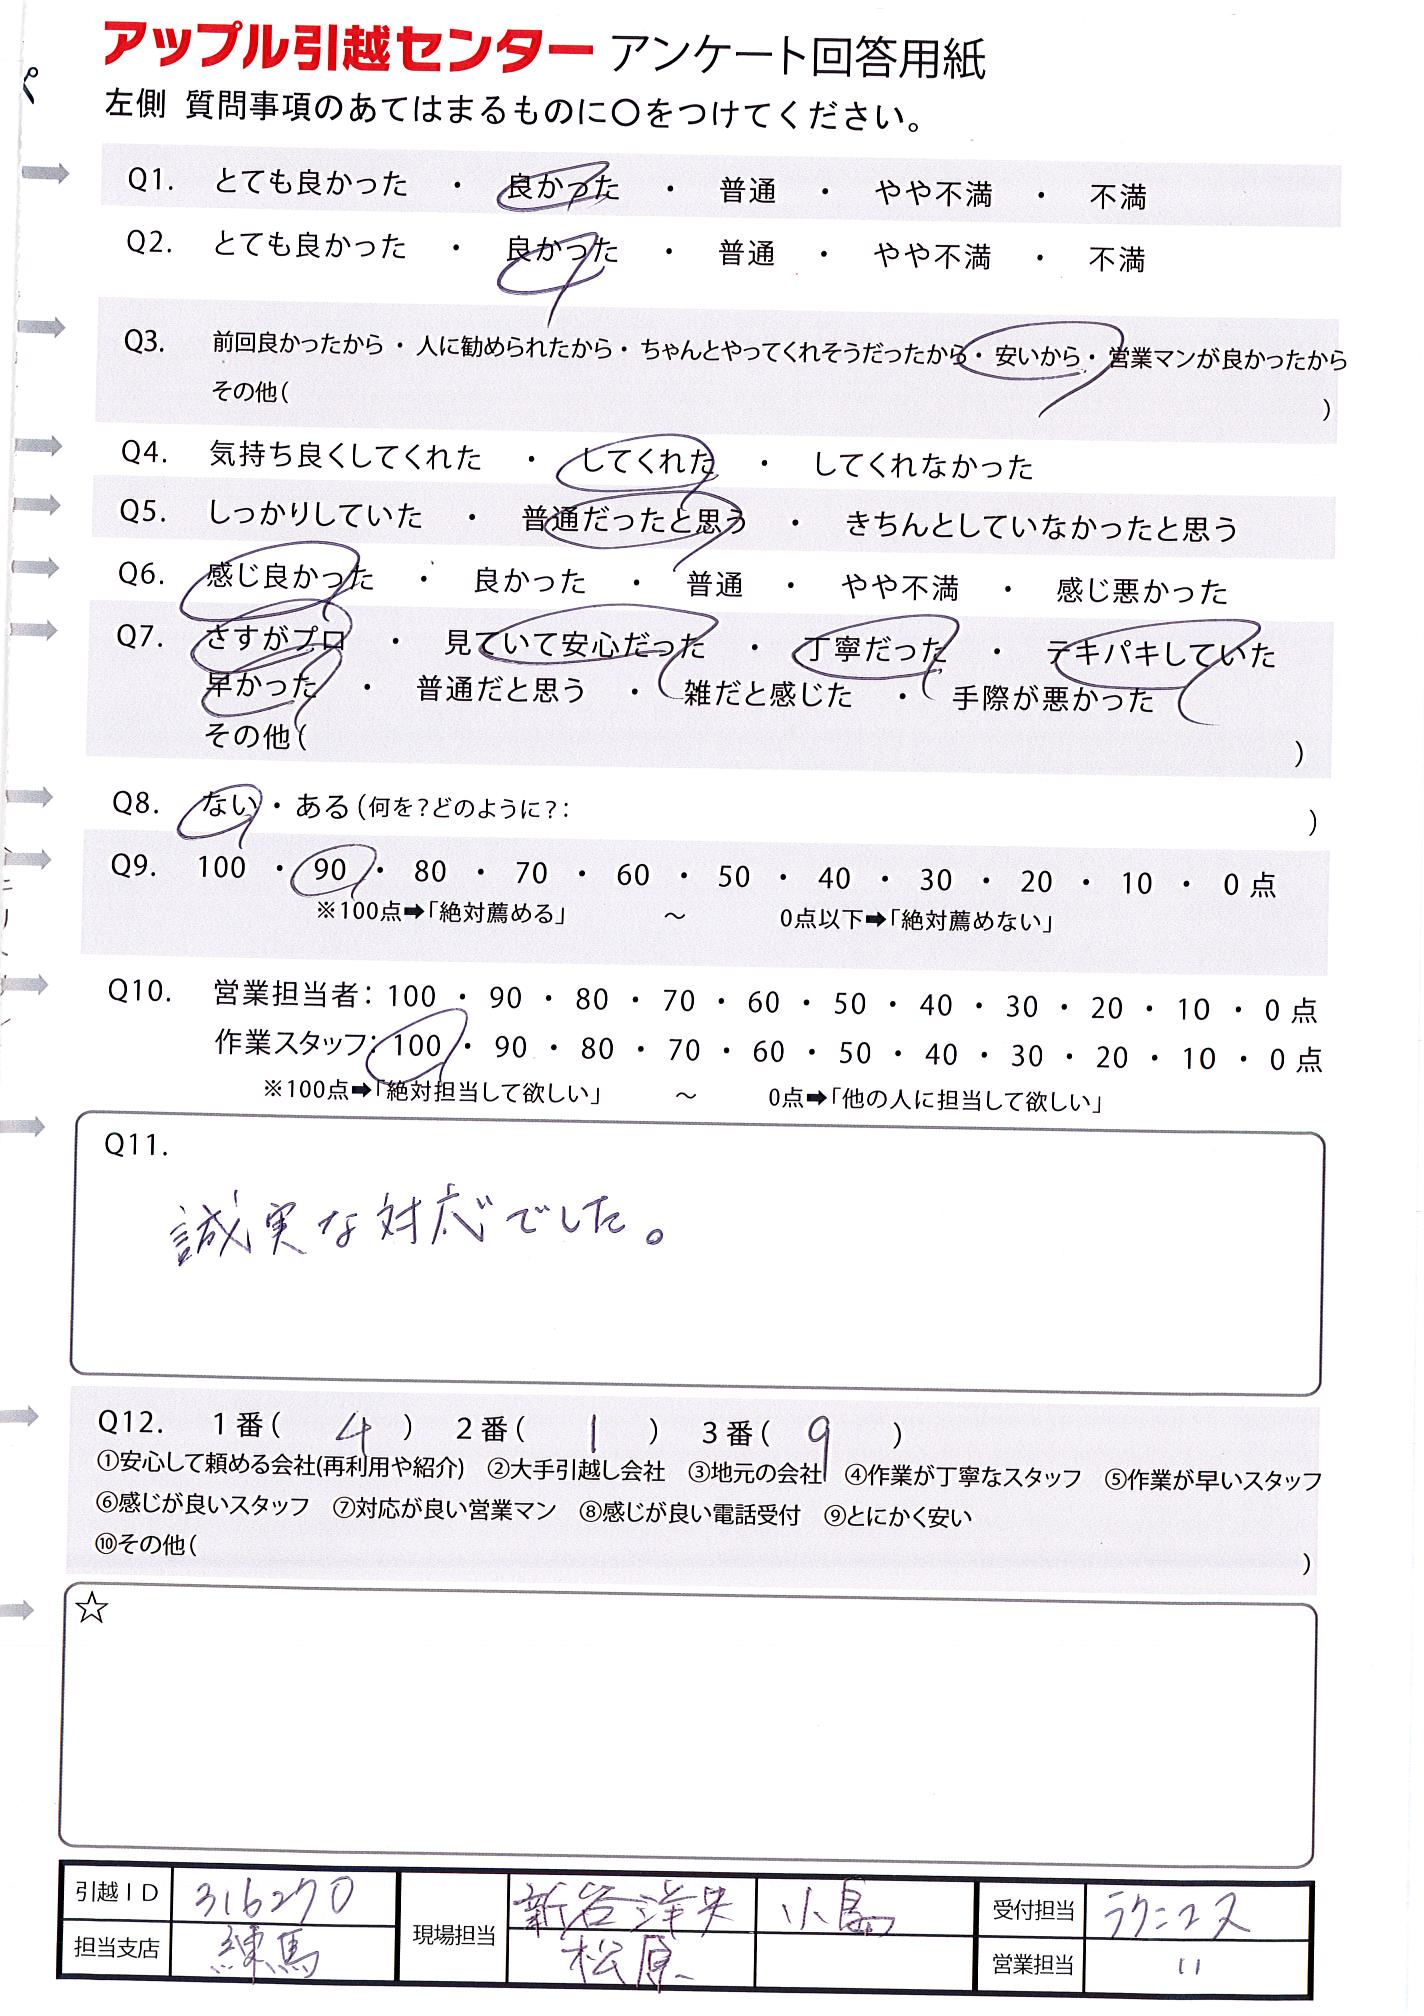 アップル引越センター アンケート回答用紙
左側 質問事項のあてはまるものに○をつけてください。
Q1. とても良かった ・ 良かった ・ 普通 ・ やや不満 ・ 不満
Q2. とても良かった ・ 良かった ・ 普通 ・ やや不満 ・ 不満
Q3. 前回良かったから ・ 人に勧められたから ・ ちゃんとやってくれそうだったから ・ 安いから ・ 営業マンが良かったから
その他( )
Q4. 気持ち良くしてくれた ・ してくれた ・ してくれなかった
Q5. しっかりしていた ・ 普通だったと思う ・ きちんとしていなかったと思う
Q6. 感じ良かった ・ 良かった ・ 普通 ・ やや不満 ・ 感じ悪かった
Q7. さすがプロ ・ 見ていて安心だった ・ 丁寧だった ・ テキパキしていた
早かった ・ 普通だと思う ・ 雑だと感じた ・ 手際が悪かった
その他( )
Q8. ない ・ ある(何を?どのように?: )
Q9. 100 ・ 90 ・ 80 ・ 70 ・ 60 ・ 50 ・ 40 ・ 30 ・ 20 ・ 10 ・ 0 点
※100点➡「絶対薦める」 ～ 0点以下➡「絶対薦めない」
Q10. 営業担当者: 100 ・ 90 ・ 80 ・ 70 ・ 60 ・ 50 ・ 40 ・ 30 ・ 20 ・ 10 ・ 0 点
作業スタッフ: 100 ・ 90 ・ 80 ・ 70 ・ 60 ・ 50 ・ 40 ・ 30 ・ 20 ・ 10 ・ 0 点
※100点➡「絶対担当して欲しい」 ～ 0点➡「他の人に担当して欲しい」
Q11.
誠実な対応でした。
Q12. 1番( 4 ) 2番( 1 ) 3番( 9 )
①安心して頼める会社(再利用や紹介) ②大手引越し会社 ③地元の会社 ④作業が丁寧なスタッフ ⑤作業が早いスタッフ
⑥感じが良いスタッフ ⑦対応が良い営業マン ⑧感じが良い電話受付 ⑨とにかく安い
⑩その他( )
☆
引越ID 316270 現場担当 新谷洋央 小島 受付担当 ラクニコス
担当支店 練馬 松原 営業担当 〃